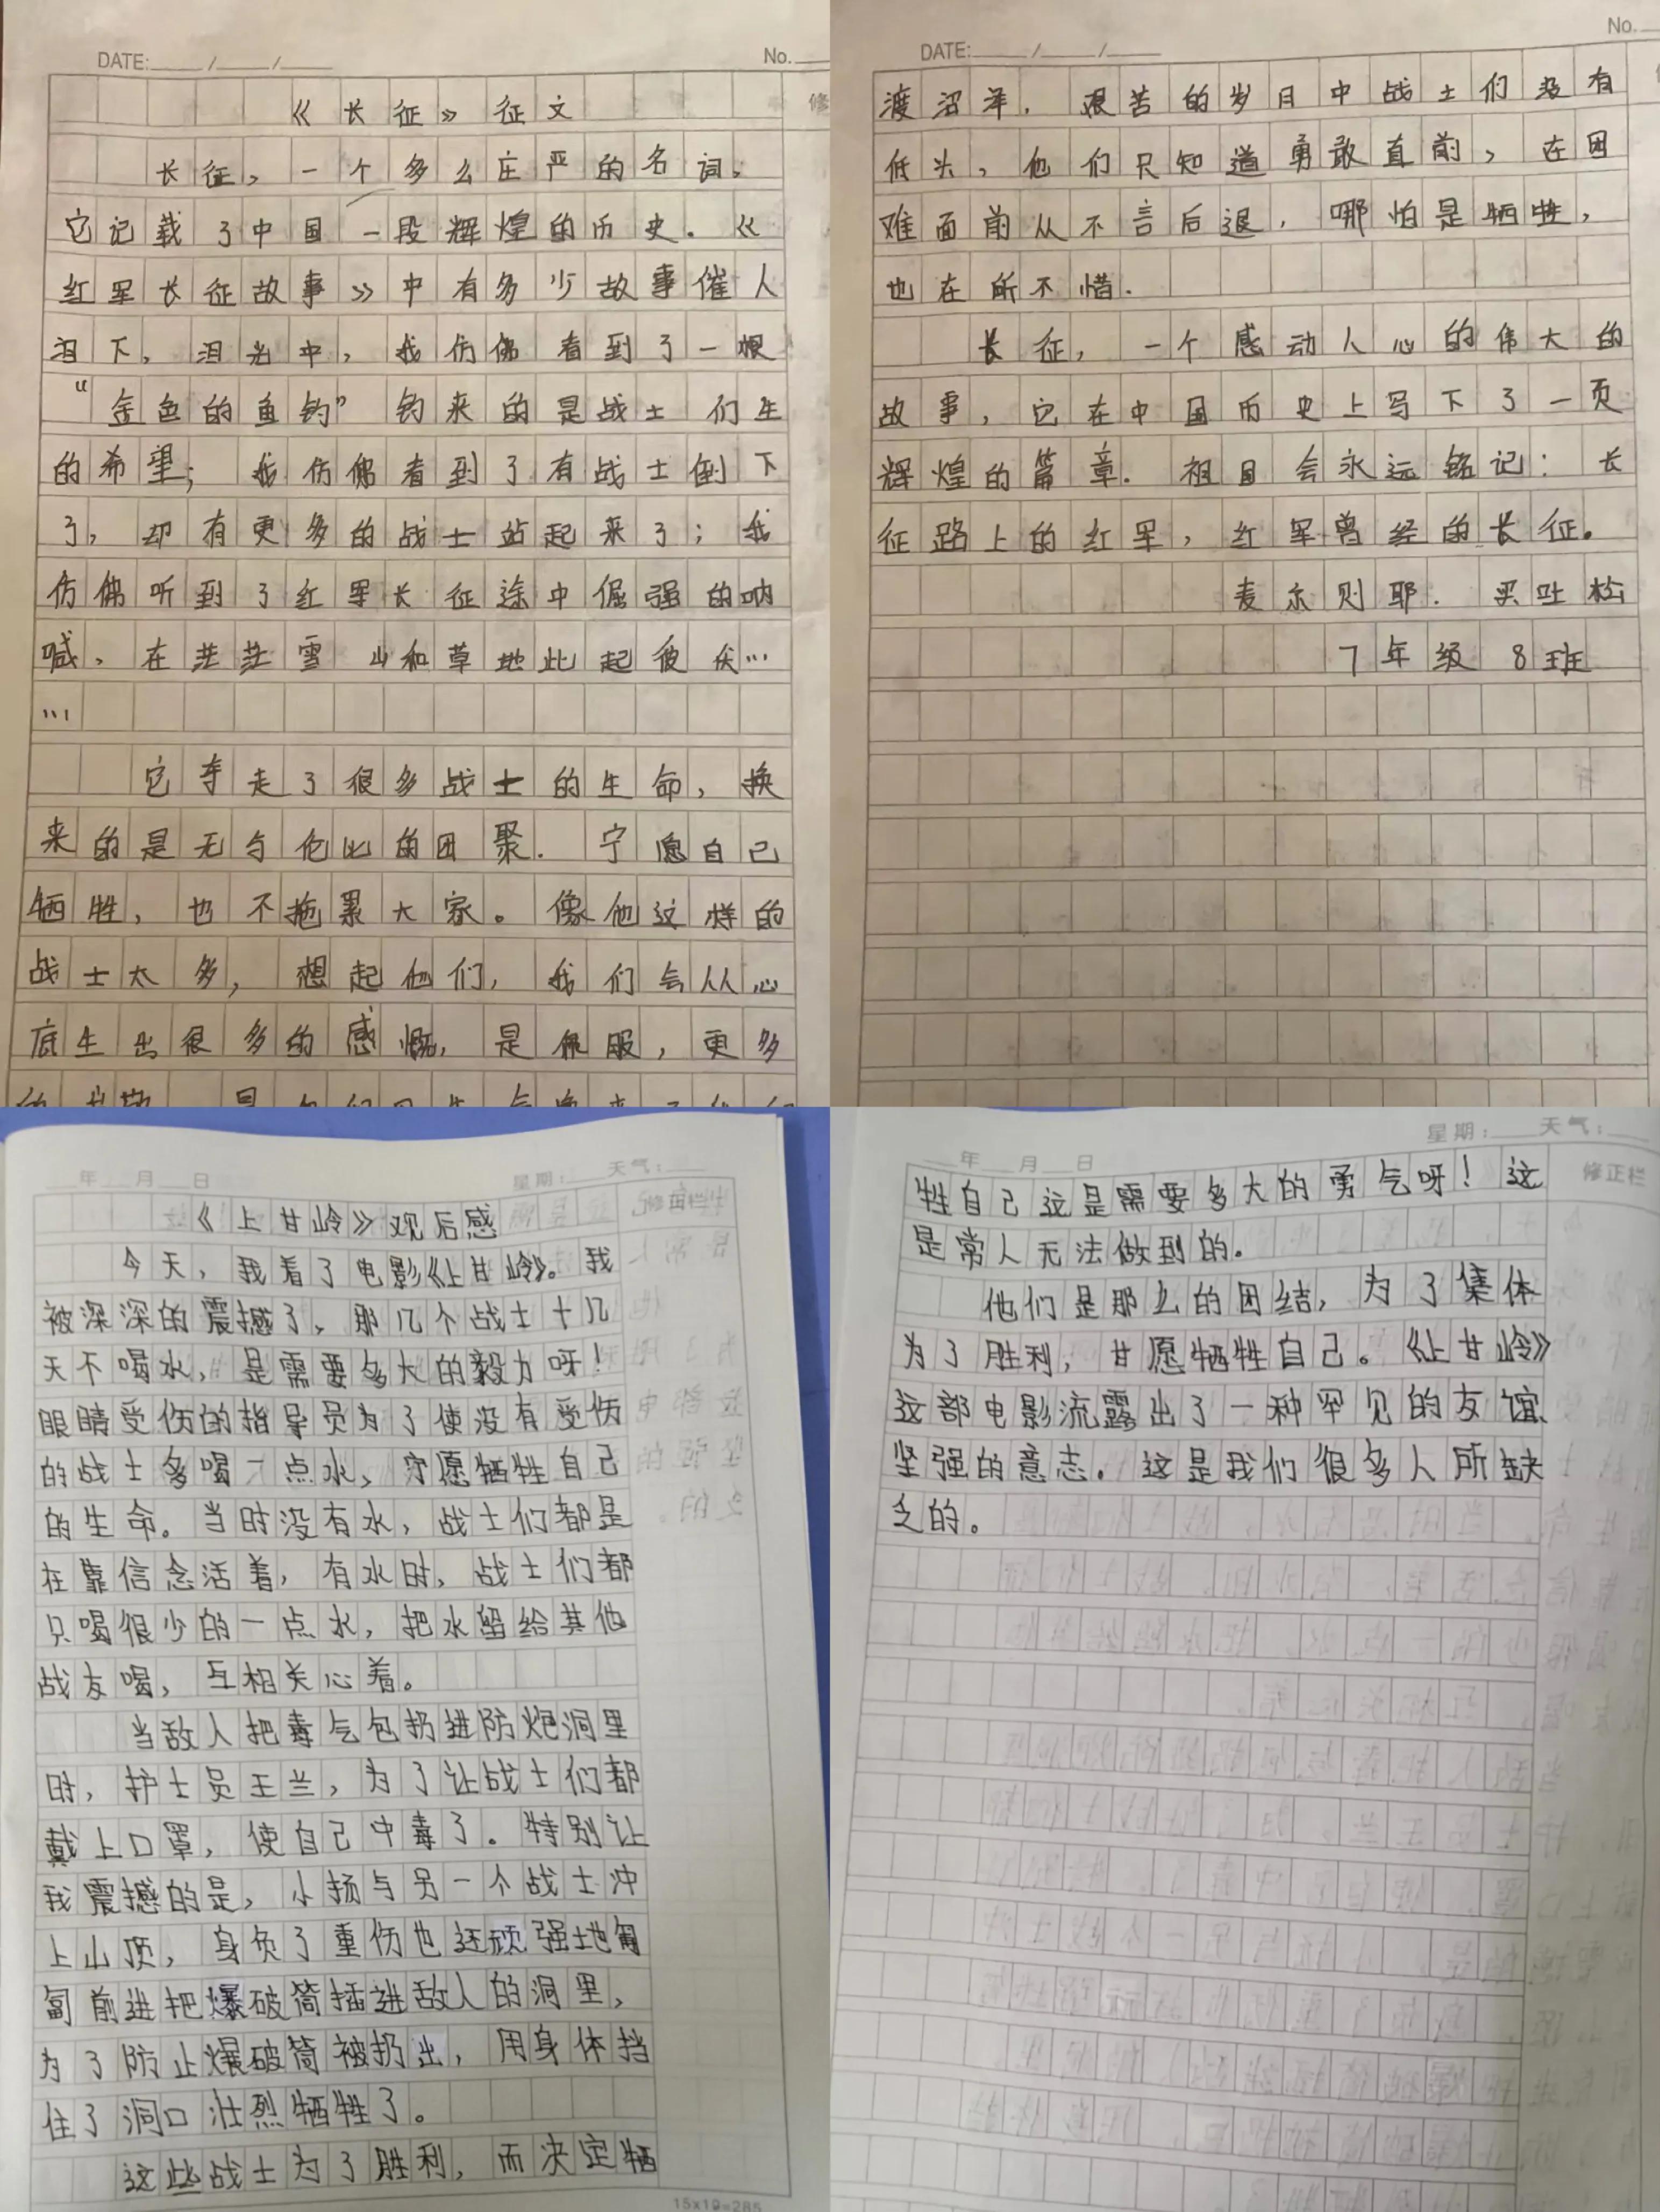 DATE: / /
No.
《长征》征文
长征，一个多么庄严的名词，
它记载了中国一段辉煌的历史。《
红军长征故事》中有多少故事催人
泪下，泪光中，我仿佛看到了一根
“金色的鱼钩”钓来的是战士们生
的希望；我仿佛看到了有战士倒下
了，却有更多的战士站起来了；我
仿佛听到了红军长征途中倔强的呐
喊，在茫茫雪山和草地此起彼伏…
…
它夺走了很多战士的生命，换
来的是无与伦比的团聚．宁愿自己
牺牲，也不拖累大家。像他这样的
战士太多，想起他们，我们会从心
底生出很多的感慨，是佩服，更多
DATE: / /
No.
渡沼泽．艰苦的岁月中战士们没有
低头，他们只知道勇敢直前，在困
难面前从不言后退，哪怕是牺牲，
也在所不惜．
长征，一个感动人心的伟大的
故事，它在中国历史上写下了一页
辉煌的篇章．祖国会永远铭记：长
征路上的红军，红军曾经的长征。
麦尔则耶．买吐松
7年级8班
年 月 日
星期： 天气：
修正栏
《上甘岭》观后感
今天，我看了电影《上甘岭》。我
被深深的震撼了，那几个战士十几
天不喝水，是需要多大的毅力呀！
眼睛受伤的指导员为了使没有受伤
的战士多喝一点水，守愿牺牲自己
的生命。当时没有水，战士们都是
在靠信念活着，有水时，战士们都
只喝很少的一点水，把水留给其他
战友喝，互相关心着。
当敌人把毒气包扔进防炮洞里
时，护士员王兰，为了让战士们都
戴上口罩，使自己中毒了。特别让
我震撼的是，小扬与另一个战士冲
上山顶，身负了重伤也还顽强地匍
匐前进把爆破筒插进敌人的洞里，
为了防止爆破筒被扔出，用身体挡
住了洞口壮烈牺牲了。
这些战士为了胜利，而决定牺
15x19=285
年 月 日
星期： 天气：
修正栏
牲自己这是需要多大的勇气呀！这
是常人无法做到的．
他们是那么的团结，为了集体
为了胜利，甘愿牺牲自己。《上甘岭》
这部电影流露出了一种罕见的友谊、
坚强的意志。这是我们很多人所缺
乏的。